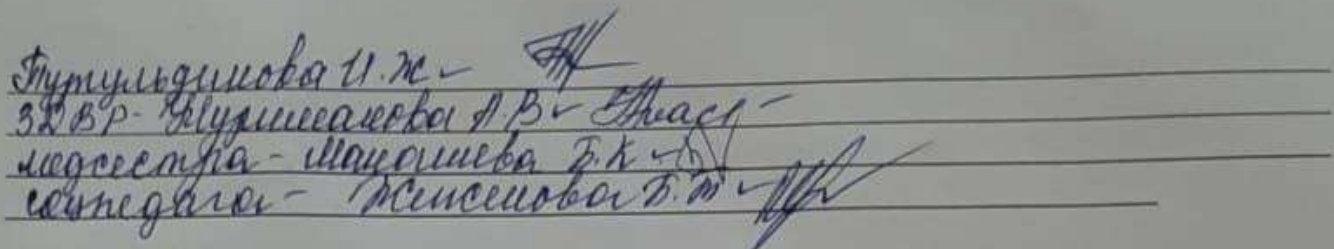 Тутульдинова И.Ж -
ЗДВР - Нуришанова А.В -
медсестра - Маношиева Б.К -
соцпедагог - Женсенова Б.Т -